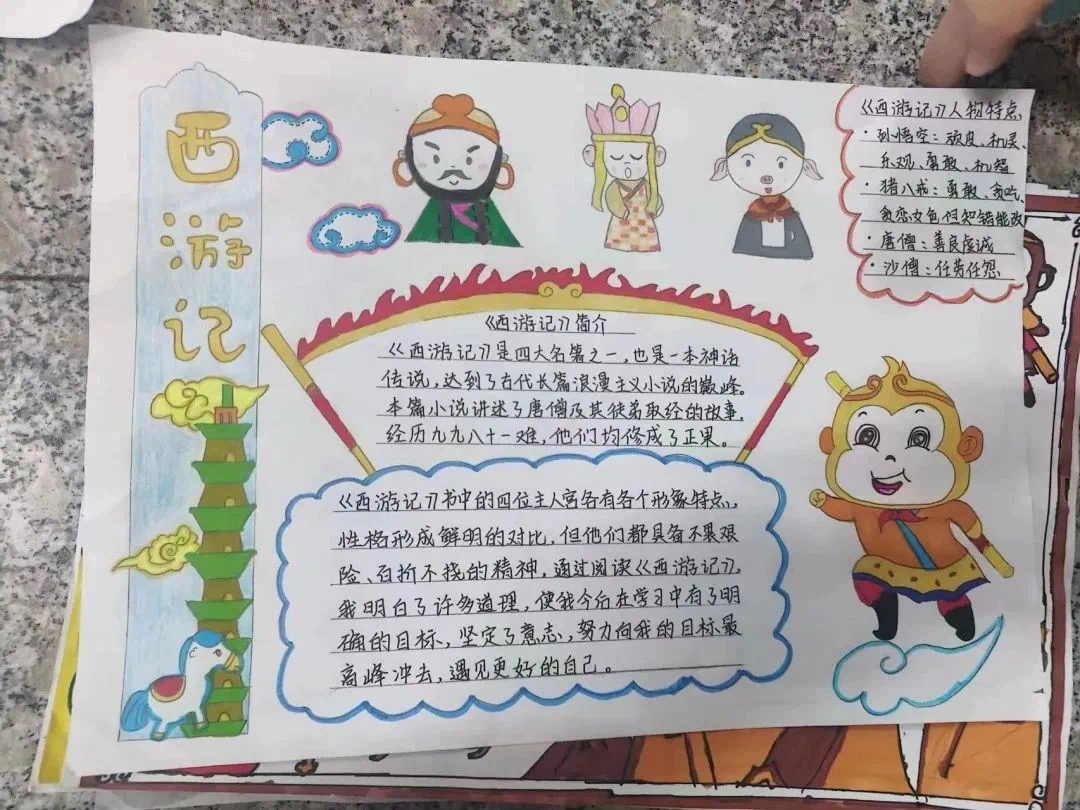 西游记
《西游记》人物特点
·孙悟空：顽皮、机灵、
乐观、勇敢、机智
·猪八戒：勇敢、贪吃、
贪恋女色但知错能改
·唐僧：善良虔诚
·沙僧：任劳任怨
《西游记》简介
《西游记》是四大名篇之一，也是一本神话
传说，达到了古代长篇浪漫主义小说的巅峰。
本篇小说讲述了唐僧及其徒弟取经的故事，
经历九九八十一难，他们均修成了正果。
《西游记》书中的四位主人宫各有各个形象特点，
性格形成鲜明的对比，但他们都具备不畏艰
险、百折不挠的精神，通过阅读《西游记》，
我明白了许多道理，使我今后在学习中有了明
确的目标、坚定了意志，努力向我的目标最
高峰冲去，遇见更好的自己。